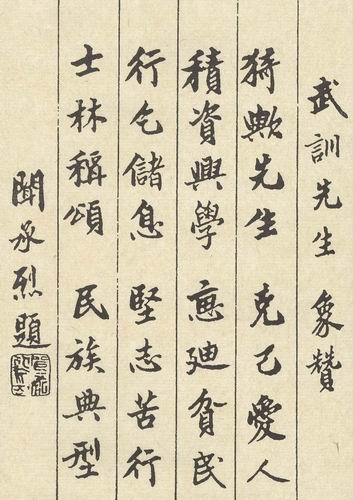 武訓先生 象贊
猗歟先生 克己愛人
積資興學 惠迪貧民
行乞儲息 堅志苦行
士林稱頌 民族典型
聞承烈題